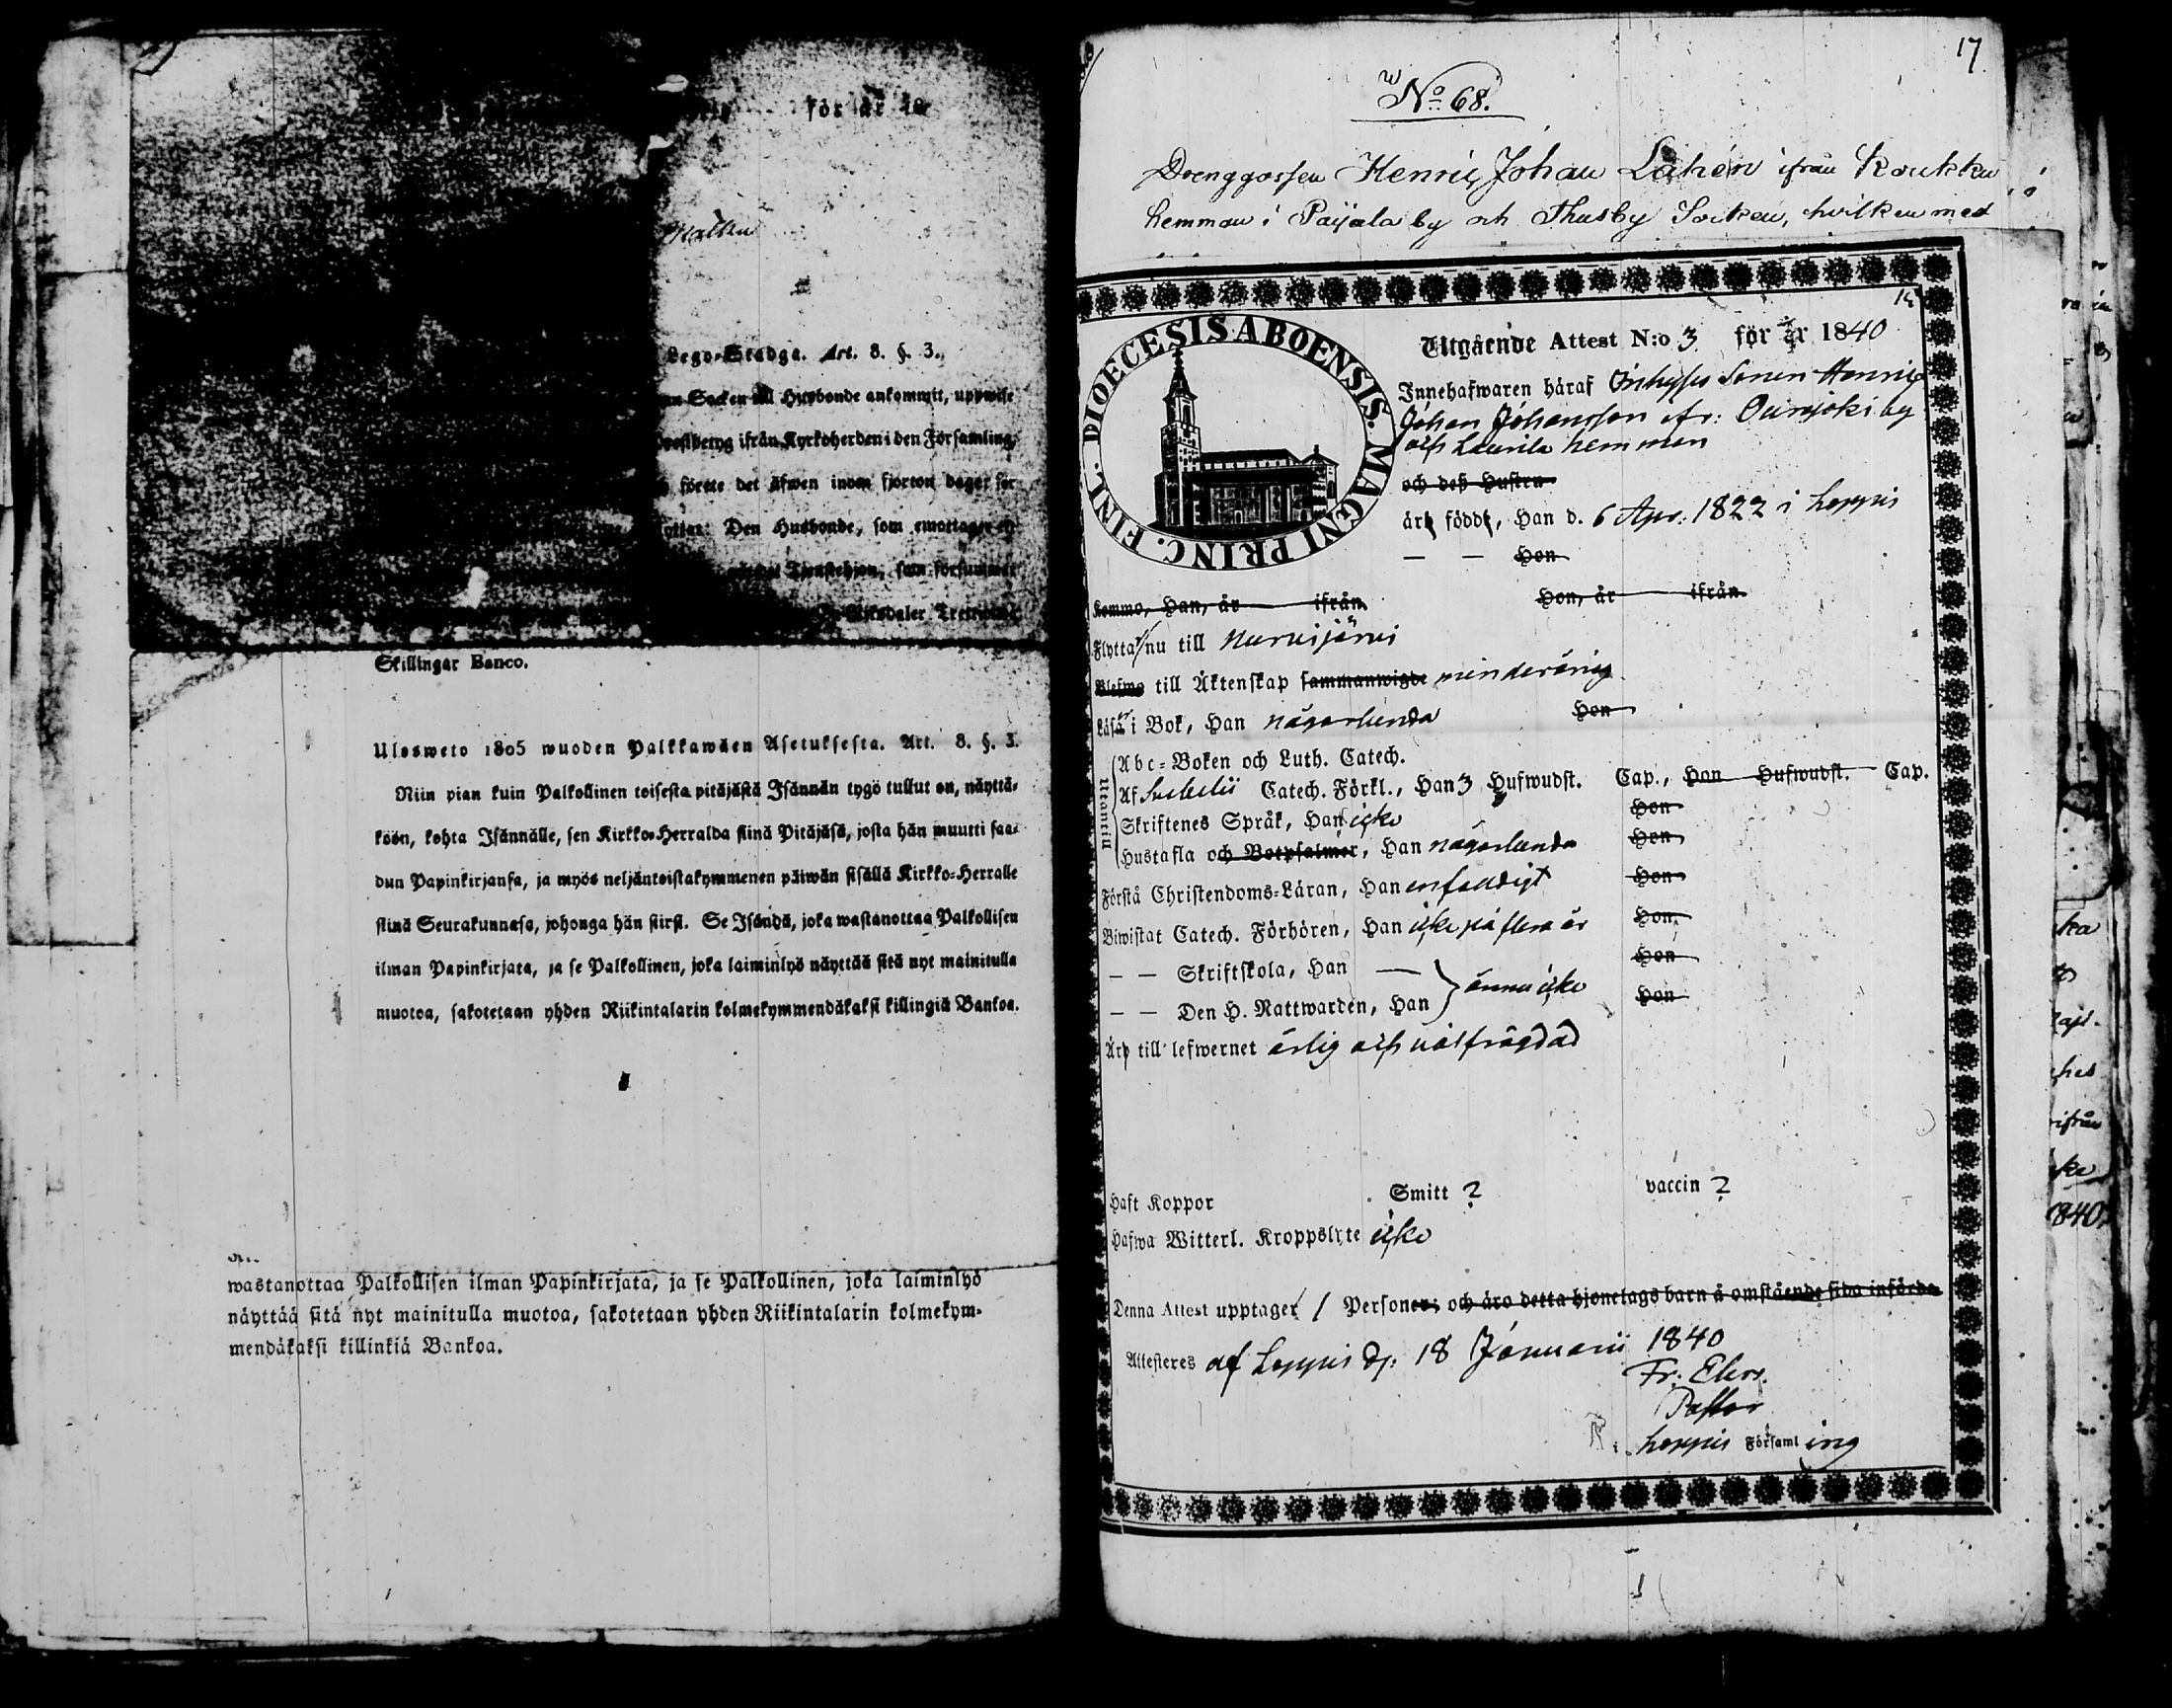 för år 18
Lego-Stadga. Art. 8. §. 3.
Socken till Husbonde ankommit, uppwise
ifrån Kyrkoherden i den Församling,
förete det äfwen inom fjorton dagar för
Den Husbonde, som emottager
Tjenstehjon, som försummar
Riksdaler Trettiotwå
Skillingar Banco.
Ulosweto 1805 wuoden Palkkawäen Asetuksesta. Art. 8. §. 3.
Niin pian kuin Palkollinen toisesta pitäjästä Isännän tygö tullut on, näyttä-
köön, kohta Isännälle, sen Kirkko-Herralda siinä Pitäjäsä, josta hän muutti saa-
dun Papinkirjansa, ja myös neljäntoistakymmenen päiwän sisällä Kirkko-Herralle
siinä Seurakunnasa, johonga hän siirsi. Se Isändä, joka wastanottaa Palkollisen
ilman Papinkirjata, ja se Palkollinen, joka laiminlyö näyttää sitä nyt mainitulla
muotoa, sakotetaan yhden Riikintalarin kolmekymmendäkaksi killingiä Bankoa.
wastanottaa Palkollisen ilman Papinkirjata, ja se Palkollinen, joka laiminlyö
näyttää sitä nyt mainitulla muotoa, sakotetaan yhden Riikintalarin kolmekym-
mendäkaksi killinkiä Bankoa.
17
No 68.
Drenggossen Henric Johan Lahén ifrån Koukku
hemman i Paijala by och Thusby Socken, hvilken med
DIOECESIS ABOENSIS. MAGNI PRINC. FINL.
Utgående Attest N:o 3 för år 1840
Innehafwaren häraf Inhyses Sonen Henric
Johan Johansson ifr: Ourajoki by
och Laurila hemman
och deß Hustru
är född, Han d. 6 Apr. 1822 i Loppis
— — Hon
Komme, Han, år ifrån Hon, år ifrån
Flyttar nu till Nurmijärvi
Blefwo till Äktenskap sammanwigde minderårig
Läsa i Bok, Han någorlunda Hon
Abc-Boken och Luth. Catech.
Af Svebelii Catech. Förkl., Han 3 Hufwudst. Cap., Hon Hufwudst. Cap.
Skriftenes Språk, Han icke Hon
Hustafla och Botpsalmer, Han någorlunda Hon
Utantill
Förstå Christendoms-Läran, Han enfaldigt Hon
Biwistat Catech. Förhören, Han icke på flera år Hon
— — Skriftskola, Han — Hon
— — Den H. Nattwarden, Han ännu icke Hon
Är till lefwernet ärlig och välfrägdad
Haft Koppor Smitt ? vaccin ?
Hafwa Witterl. Kroppslyte icke
Denna Attest upptager 1 Personer; och äro detta hjonelags barn å omstående sida införda
Attesteres af Loppis d. 18 Januarii 1840
Fr. Ehrs.
Pastor
i Loppis Församling